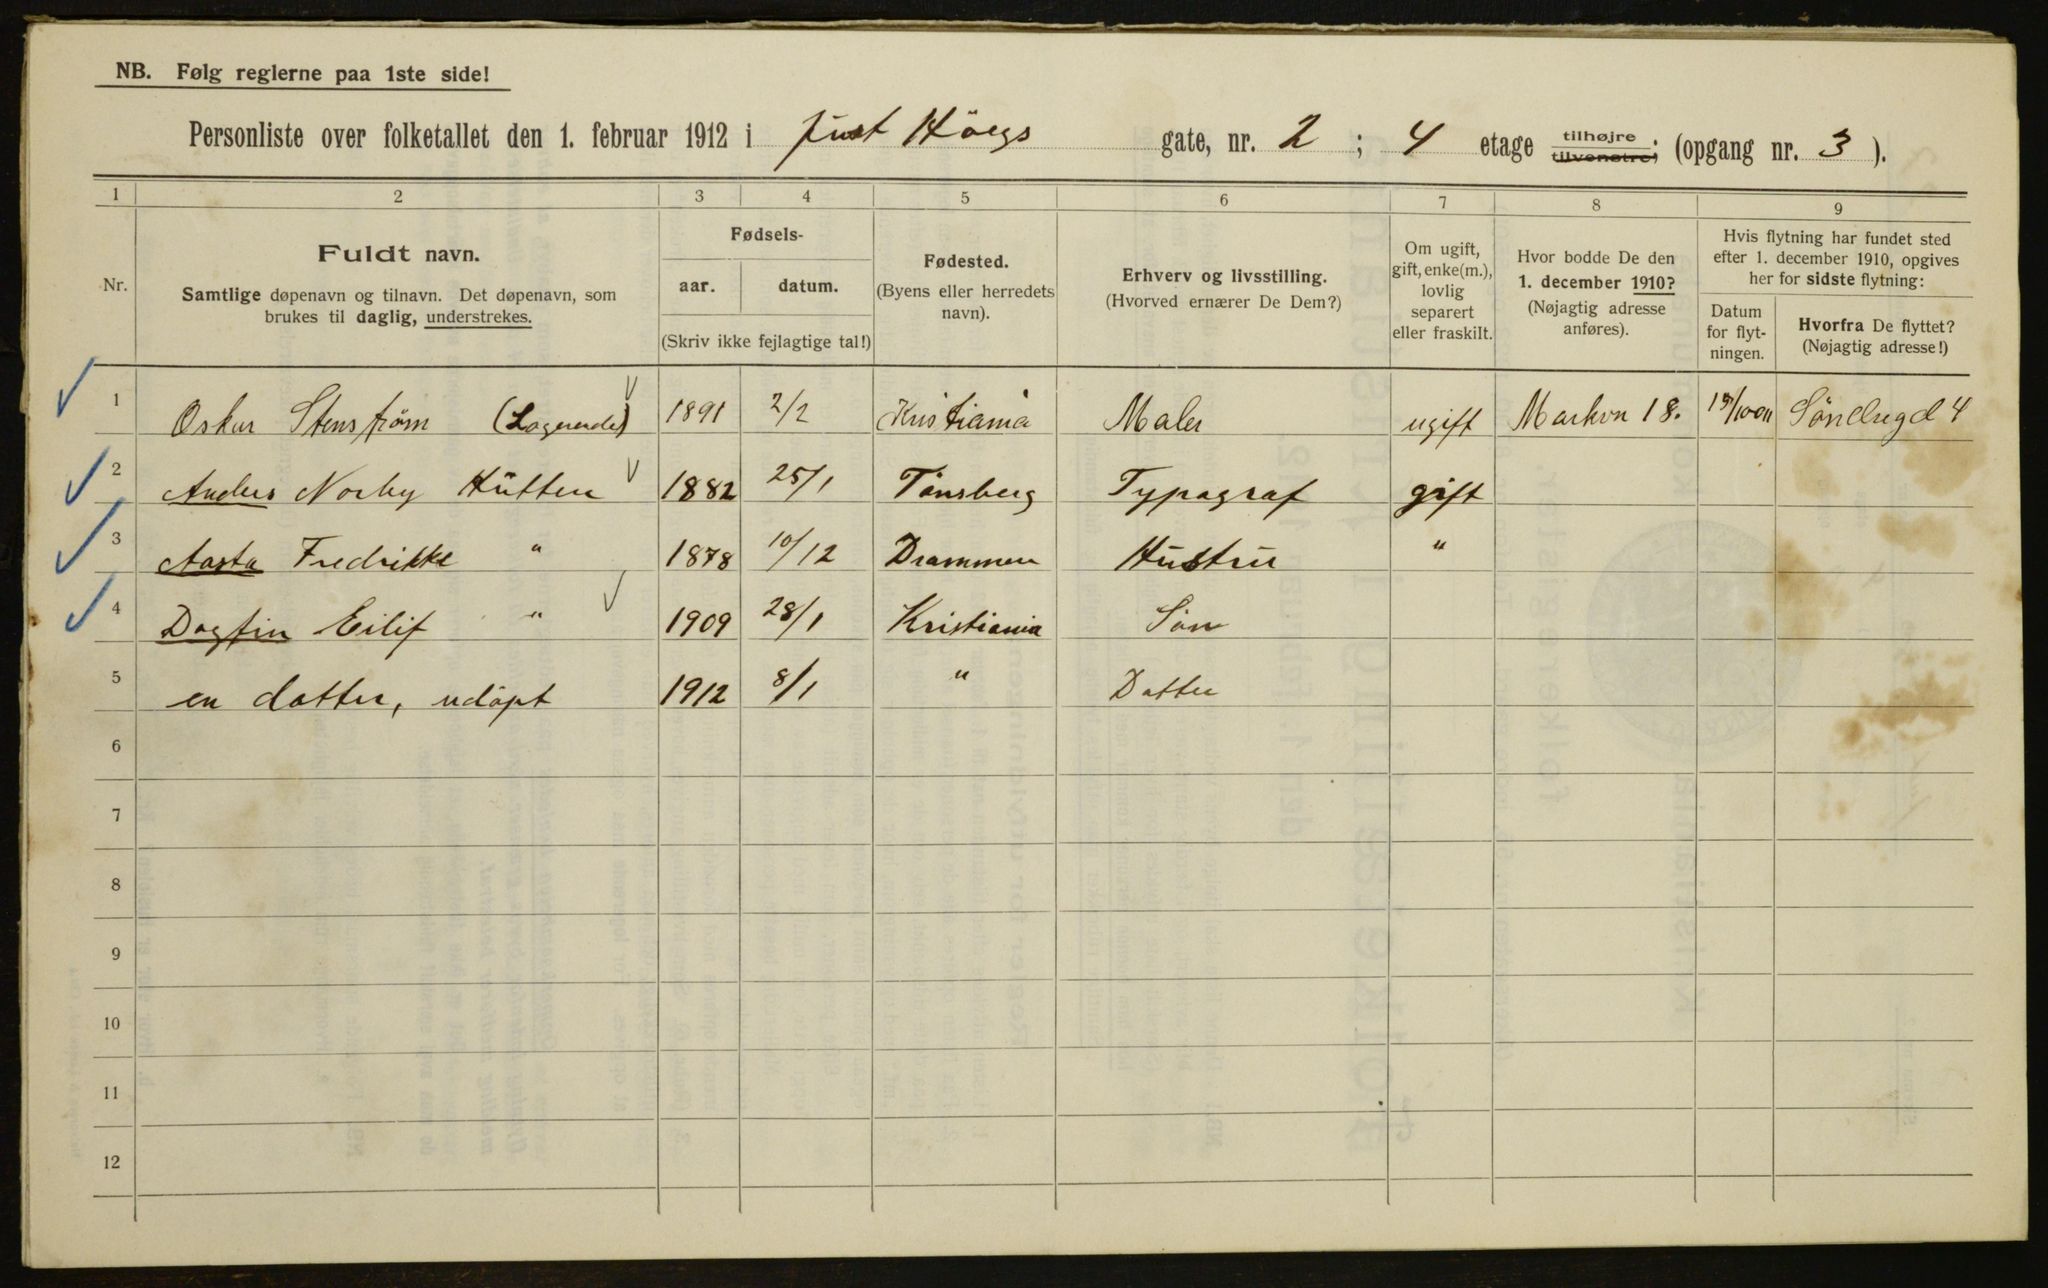 NB. Følg reglerne paa 1ste side!
Personliste over folketallet den 1. februar 1912 i Just Höegs gate, nr. 2 ; 4 etage tilhøjre tilvenstre; (opgang nr. 3 ).
1 2 3 4 5 6 7 8 9
Nr.
Fuldt navn.
Samtlige døpenavn og tilnavn. Det døpenavn, som
brukes til daglig, understrekes.
Fødsels-
aar. datum.
(Skriv ikke fejlagtige tal!)
Fødested.
(Byens eller herredets
navn).
Erhverv og livsstilling.
(Hvorved ernærer De Dem?)
Om ugift,
gift, enke(m.),
lovlig
separert
eller fraskilt.
Hvor bodde De den
1. december 1910?
(Nøjagtig adresse
anføres).
Hvis flytning har fundet sted
efter 1. december 1910, opgives
her for sidste flytning:
Datum
for flyt-
ningen.
Hvorfra De flyttet?
(Nøjagtig adresse!)
1 Oskar Stenstrøm (Logerende) 1891 2/2 Kristiania Maler ugift Markvn 18.
2 Anders Norby Hütten 1882 25/1 Tönsberg Typograf gift
3 Aasta Fredrikke " 1878 10/12 Drammen Hustru "
4 Dagfin Eilif " 1909 28/1 Kristiania Sön
5 en datter, udöpt 1912 8/1 " Datter
6
7
8
9
10
11
12